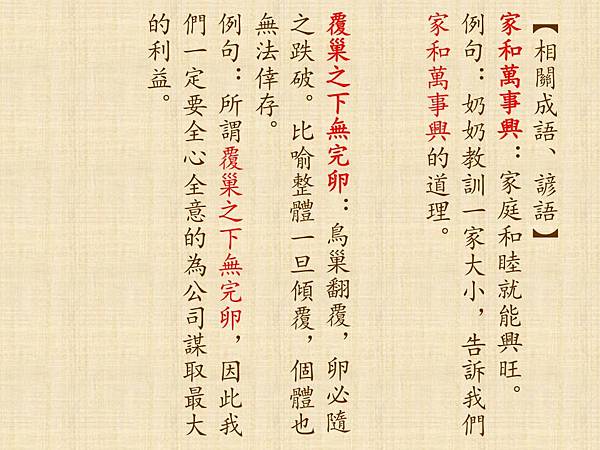 【相關成語、諺語】
家和萬事興：家庭和睦就能興旺。
例句：奶奶教訓一家大小，告訴我們
家和萬事興的道理。
覆巢之下無完卵：鳥巢翻覆，卵必隨
之跌破。比喻整體一旦傾覆，個體也
無法倖存。
例句：所謂覆巢之下無完卵，因此我
們一定要全心全意的為公司謀取最大
的利益。